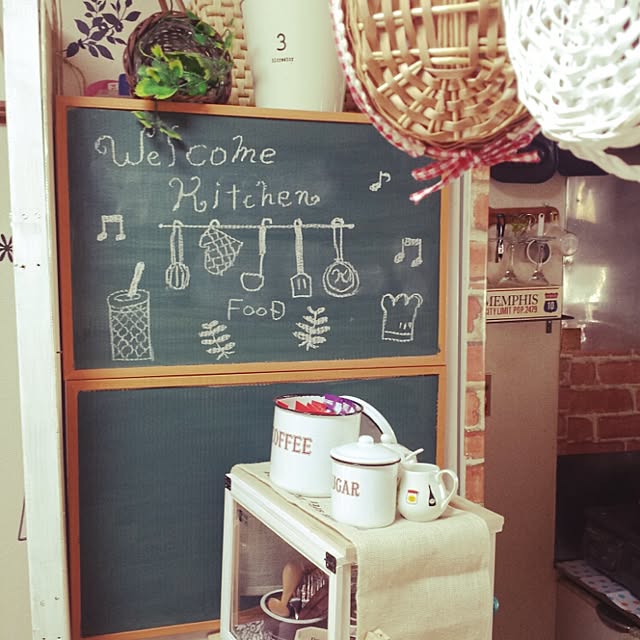 3
Welcome
Kitchen
FOOD
MEMPHIS
CITY LIMIT POP. 2479
COFFEE
SUGAR